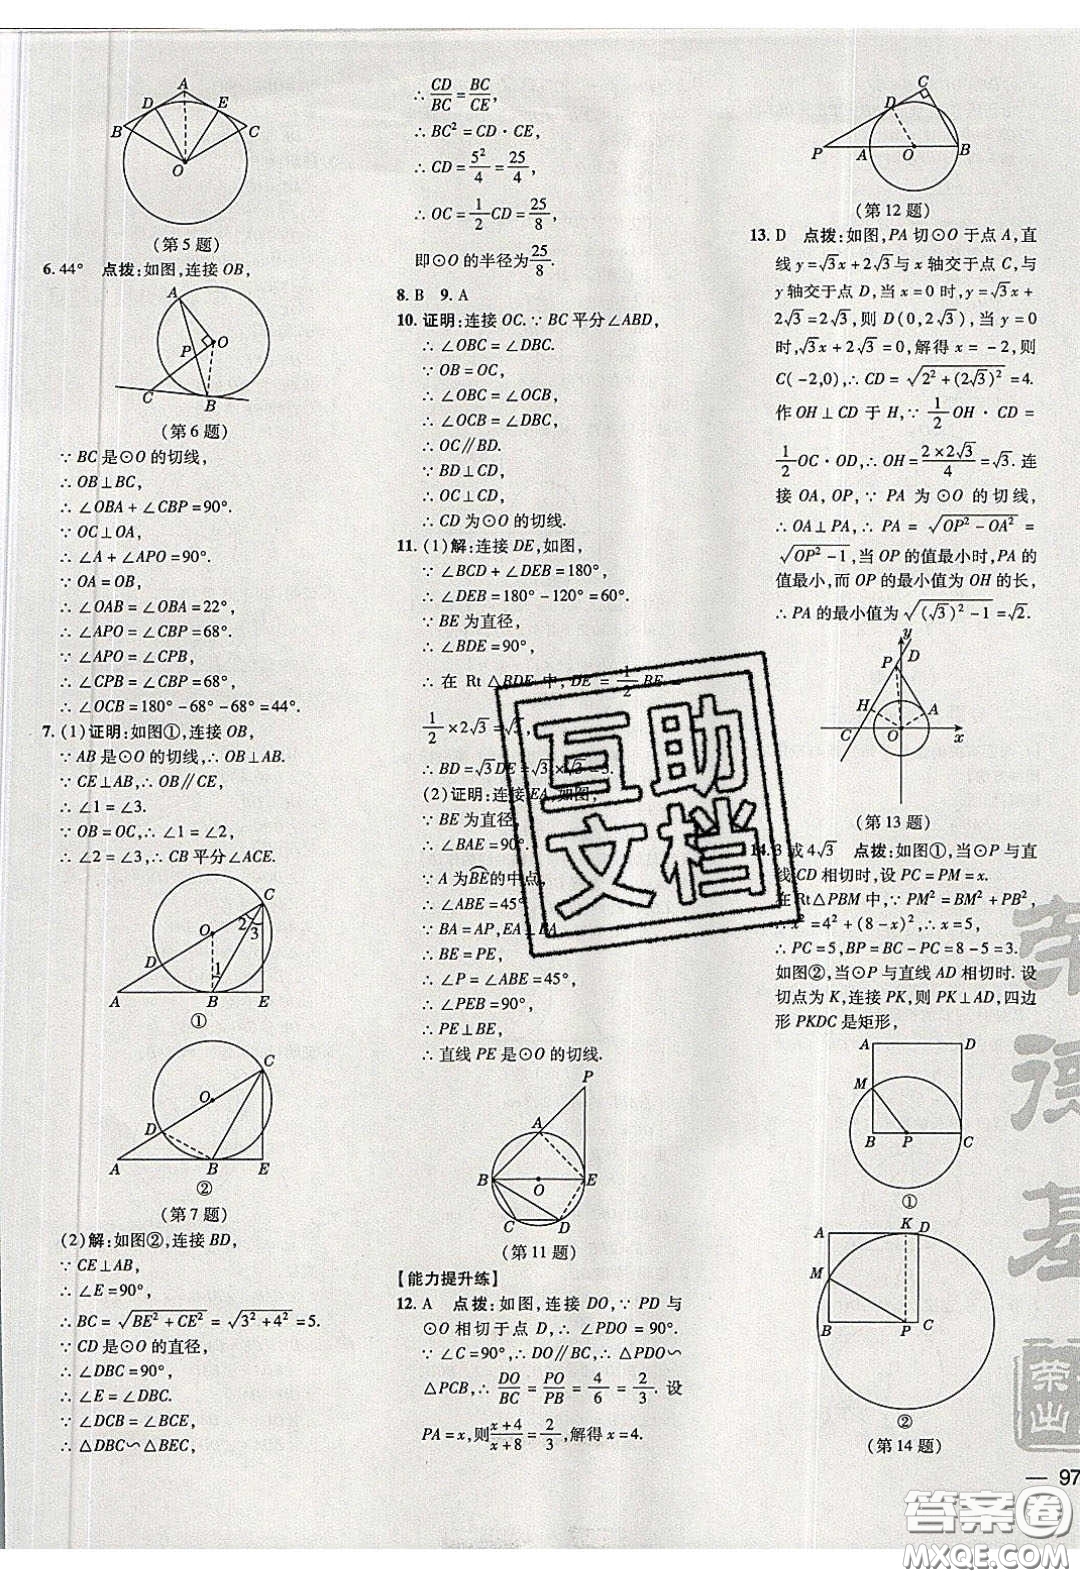 A
D
E
B
C
O
(第5题)
6. 44° 点拨:如图,连接OB,
A
O
P
C
B
(第6题)
∵ BC是⊙O的切线,
∴ OB⊥BC,
∴ ∠OBA+∠CBP=90°.
∵ OC⊥OA,
∴ ∠A+∠APO=90°.
∵ OA=OB,
∴ ∠OAB=∠OBA=22°,
∴ ∠APO=∠CBP=68°.
∵ ∠APO=∠CPB,
∴ ∠CPB=∠CBP=68°,
∴ ∠OCB=180°-68°-68°=44°.
7. (1)证明:如图①,连接OB,
∵ AB是⊙O的切线,∴ OB⊥AB.
∵ CE⊥AB,∴ OB∥CE,
∴ ∠1=∠3.
∵ OB=OC,∴ ∠1=∠2,
∴ ∠2=∠3,∴ CB平分∠ACE.
C
2
3
O
D
1
A
B
E
①
C
O
D
A
B
E
②
(第7题)
(2)解:如图②,连接BD,
∵ CE⊥AB,
∴ ∠E=90°,
∴ BC=√(BE²+CE²)=√(3²+4²)=5.
∵ CD是⊙O的直径,
∴ ∠DBC=90°,
∴ ∠E=∠DBC.
∵ ∠DCB=∠BCE,
∴ △DBC∽△BEC,
∴ CD/BC=BC/CE,
∴ BC²=CD·CE,
∴ CD=5²/4=25/4,
∴ OC=1/2CD=25/8,
即⊙O的半径为25/8.
8. B 9. A
10. 证明:连接OC.∵ BC平分∠ABD,
∴ ∠OBC=∠DBC.
∵ OB=OC,
∴ ∠OBC=∠OCB,
∴ ∠OCB=∠DBC,
∴ OC∥BD.
∵ BD⊥CD,
∴ OC⊥CD,
∴ CD为⊙O的切线.
11. (1)解:连接DE,如图,
∵ ∠BCD+∠DEB=180°,
∴ ∠DEB=180°-120°=60°.
∵ BE为直径,
∴ ∠BDE=90°,
∴ 在 Rt△BDE 中,DE=1/2BE=
1/2×2√3=√3,
∴ BD=√3DE=√3×√3=3.
(2)证明:连接EA,如图,
∵ BE为直径,
∴ ∠BAE=90°.
∵ A为BE的中点,
∴ ∠ABE=45°.
∵ BA=AP,EA⊥BA,
∴ BE=PE,
∴ ∠P=∠ABE=45°,
∴ ∠PEB=90°,
∴ PE⊥BE,
∴ 直线PE是⊙O的切线.
P
A
B
O
E
C
D
(第11题)
【能力提升练】
12. A 点拨:如图,连接DO,∵ PD与
⊙O相切于点D,∴ ∠PDO=90°.
∵ ∠C=90°,∴ DO∥BC,∴ △PDO∽
△PCB,∴ DO/BC=PO/PB=4/6=2/3. 设
PA=x,则(x+4)/(x+8)=2/3,解得x=4.
C
D
P
A
O
B
(第12题)
13. D 点拨:如图,PA切⊙O于点A,直
线y=√3x+2√3与x轴交于点C,与
y轴交于点D,当x=0时,y=√3x+
2√3=2√3,则D(0,2√3),当y=0
时,√3x+2√3=0,解得x=-2,则
C(-2,0),∴ CD=√(2²+(2√3)²)=4.
作OH⊥CD于H,∵ 1/2OH·CD=
1/2OC·OD,∴ OH=(2×2√3)/4=√3. 连
接OA,OP,∵ PA为⊙O的切线,
∴ OA⊥PA,∴ PA=√(OP²-OA²)=
√(OP²-1),当OP的值最小时,PA的
值最小,而OP的最小值为OH的长,
∴ PA的最小值为√((√3)²-1)=√2.
y
P
D
H
A
C
O
x
(第13题)
14. 3或4√3 点拨:如图①,当⊙P与直
线CD相切时,设PC=PM=x.
在Rt△PBM中,∵ PM²=BM²+PB²,
∴ x²=4²+(8-x)²,∴ x=5,
∴ PC=5,BP=BC-PC=8-5=3.
如图②,当⊙P与直线AD相切时.设
切点为K,连接PK,则PK⊥AD,四边
形PKDC是矩形,
A
D
M
B
P
C
①
A
K
D
M
B
P
C
②
(第14题)
— 97
互助
文档
荣德基
荣出
答案圈
MXQE.COM